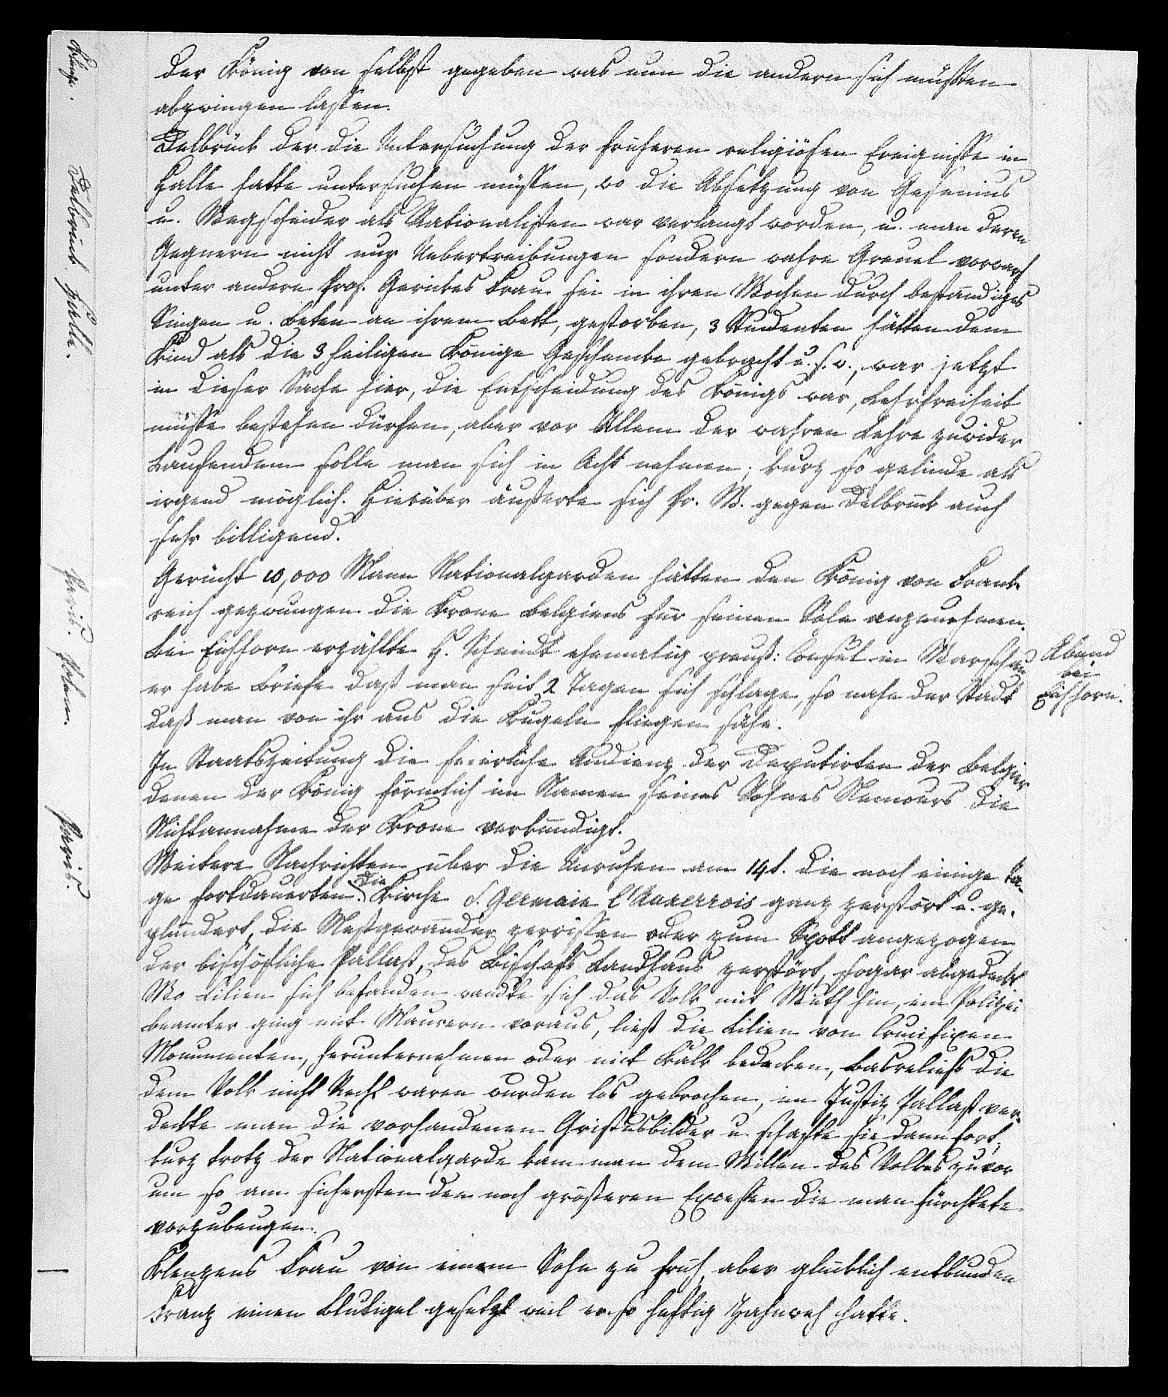 der König von selbst gegeben was nun die andern sich müßten
abzwingen lassen.
Delbrück der die Untersuchung der früheren religiösen Ereignisse in
Halle hatte untersuchen müssen, wo die Absetzung von Gesenius
u. Wegscheider als Rationalisten war verlangt worden, u. man deren
Gegnern nicht nur Uebertreibungen sondern wahre Greuel vorwarf
unter andern Prof. Gerickes Frau sei in ihren Wochen durch beständiges
Singen u. Beten an ihrem Bett, gestorben, 3 Studenten hätten dem
Kind als die 3 heiligen Könige Geschenke gebracht u. s. w., war jetzt
in dieser Sache hier, die Entscheidung des Königs war, Lehrfreiheit
müsse bestehen dürfen, aber vor Allem der wahren Lehre zuwider
Laufendem solle man sich in Acht nehmen; kurz so gelinde als
irgend möglich. Hierüber äußerte sich Pr. W. gegen Delbrück auch
sehr billigend.
Gerücht 10,000 Mann Nationalgarden hätten den König von Frank-
reich gezwungen die Krone Belgiens für seinen Sohn anzunehmen.
Bei Eichhorn erzählte H. Schmidt ehemalig preuß: Consul in Warschau
er habe Briefe daß man seit 2 Tagen sich schlage, so nahe der Stadt
daß man von ihr aus die Kugeln fliegen sähe.
Abend
bei
Eichhorn.
In Staatszeitung die feierliche Audienz der Deputirten der Belgier
denen der König förmlich im Namen seines Sohnes Nemours die
Nichtannahme der Krone verkündigt.
Weitere Nachrichten über die Unruhen am 14t. die noch einige Ta-
ge fortdauerten. Die Kirche S. Germain l'Auxerrois ganz zerstört u. ge-
plündert, die Meßgewänder zerrissen oder zum Spott angezogen
der bischöfliche Pallast, des Bischofs Landhaus zerstört, sogar abgedeckt
Wo Lilien sich befanden wandte sich das Volk mit Wuth hin, ein Polizei
beamter ging mit Maurern voraus, ließ die Lilien von Crucifixen
Monumenten, herunternehmen oder mit Kalk bedecken, Basreliefs die
dem Volk nicht Recht waren wurden los gebrochen, im Justiz Pallast ver-
deckte man die vorhandenen Christusbilder u. schaffte sie dann fort,
kurz trotz der Nationalgarde kam man dem Willen des Volkes zuvor
um so am sichersten den noch größeren Excessen die man fürchtete
vorzubeugen.
Klenzens Frau von einem Sohn zu früh, aber glücklich entbunden
Franz einen Blutigel gesetzt weil er so heftig Zahnweh hatte.
Delbrück. Halle.
Paris. Polen.
Paris.